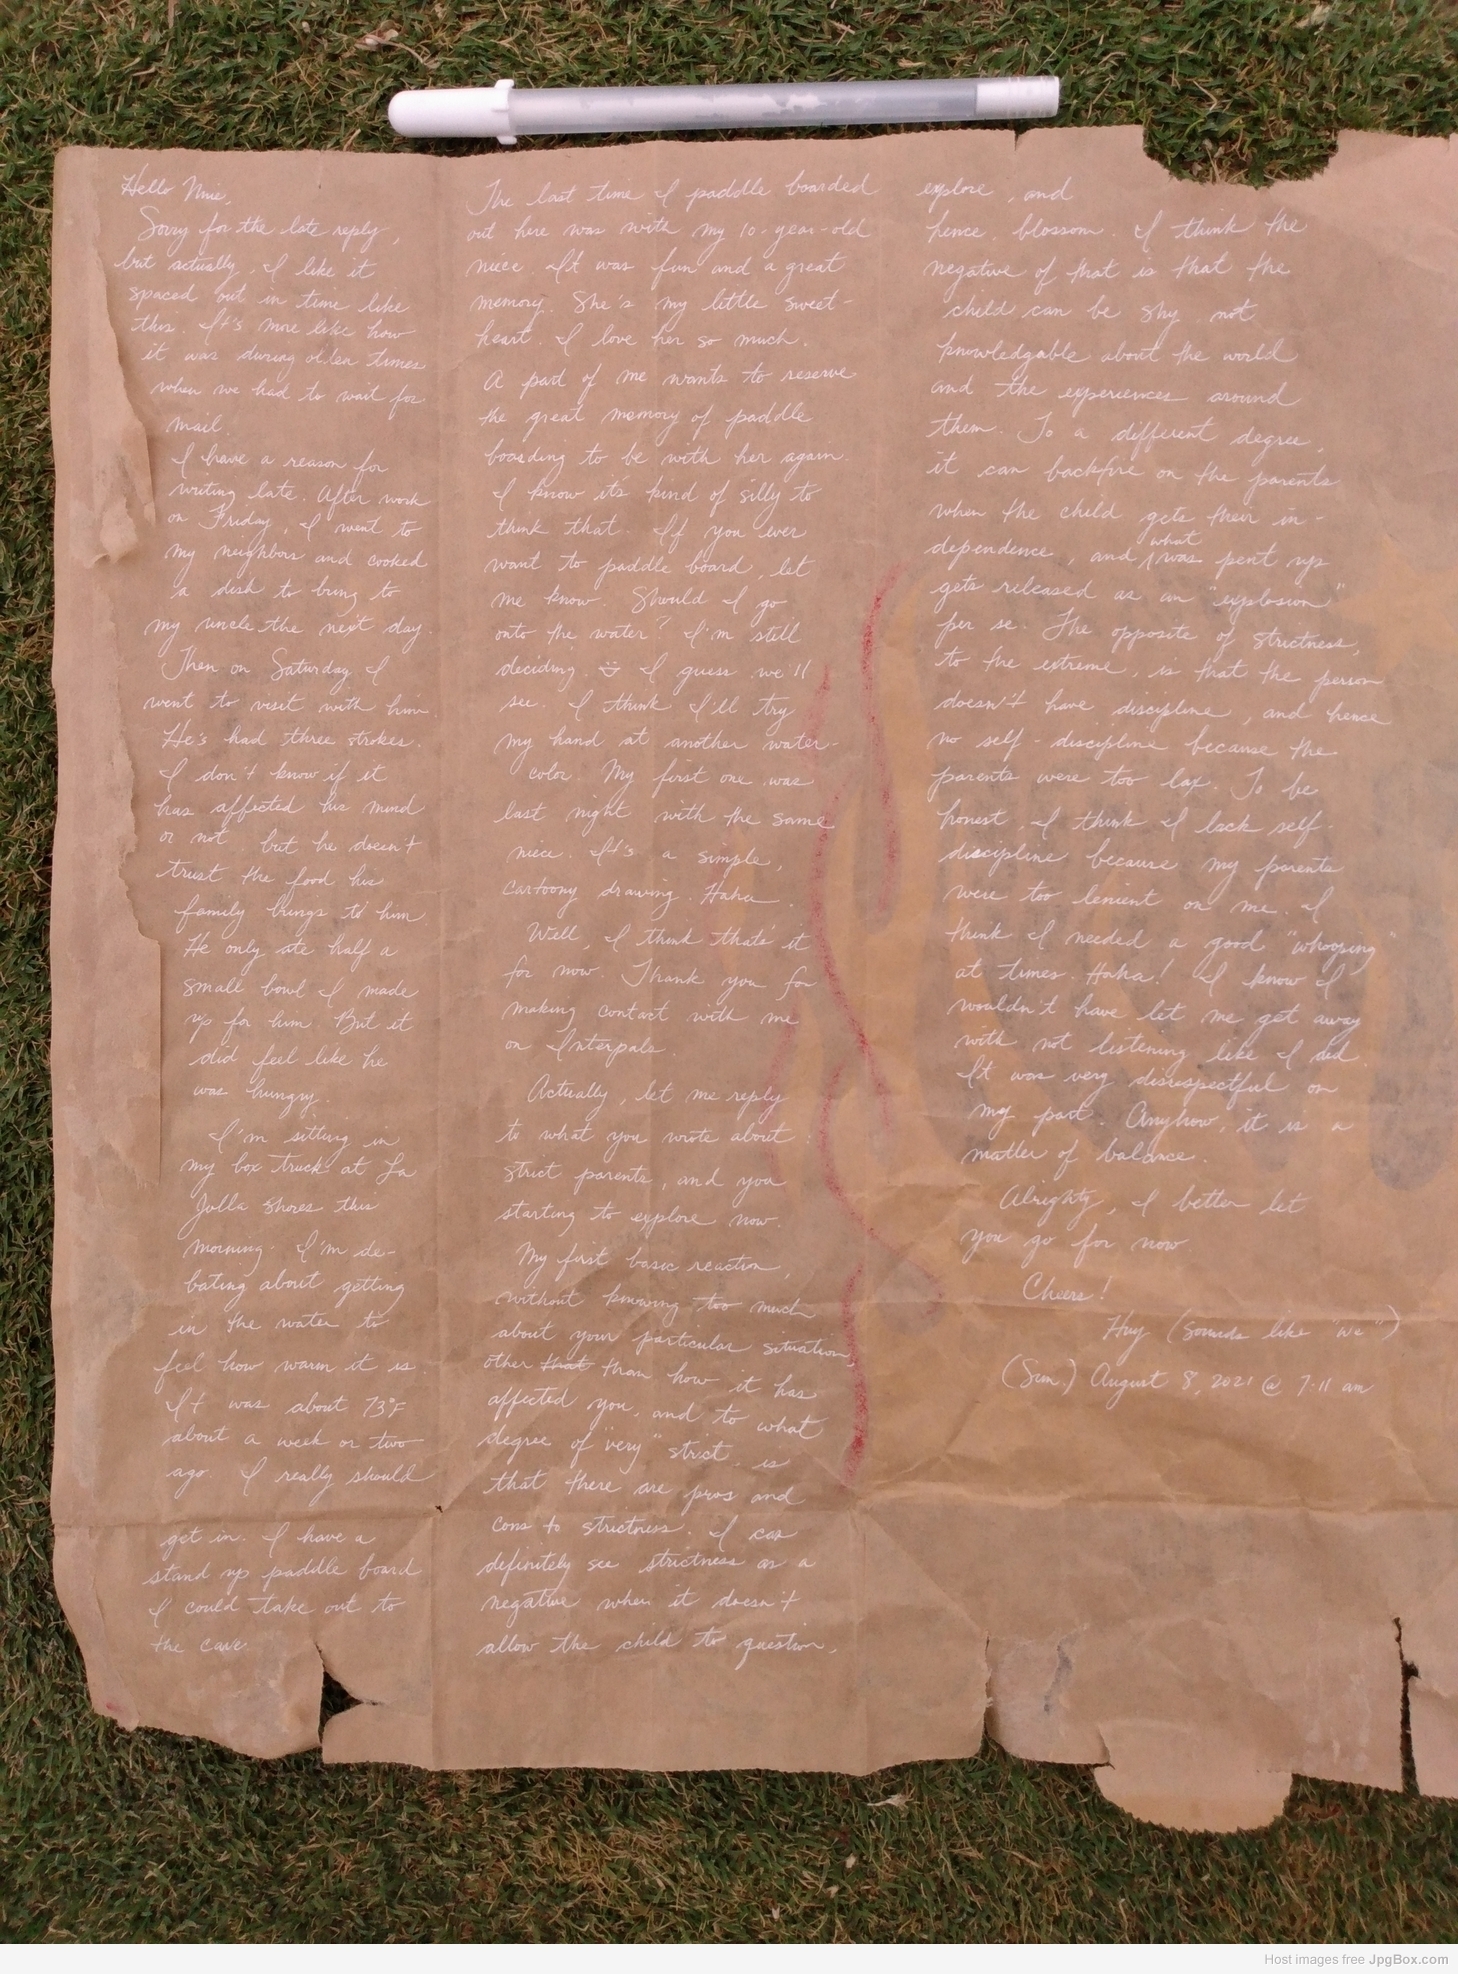 Hello Mie,
Sorry for the late reply,
but actually, I like it
spaced out in time like
this. It's more like how
it was during olden times
when we had to wait for
mail.
I have a reason for
writing late. After work
on Friday, I went to
my neighbors and cooked
a dish to bring to
my uncle the next day.
Then on Saturday I
went to visit with him.
He's had three strokes.
I don't know if it
has affected his mind
or not, but he doesn't
trust the food his
family brings to him.
He only ate half a
small bowl I made
up for him. But it
did feel like he
was hungry.
I'm sitting in
my box truck at La
Jolla Shores this
morning. I'm de-
bating about getting
in the water to
feel how warm it is.
It was about 73°F
about a week or two
ago. I really should
get in. I have a
stand up paddle board
I could take out to
the cave.
The last time I paddle boarded
out here was with my 10-year-old
niece. It was fun and a great
memory. She's my little sweet-
heart. I love her so much.
A part of me wants to reserve
the great memory of paddle
boarding to be with her again.
I know it's kind of silly to
think that. If you ever
want to paddle board, let
me know. Should I go
onto the water? I'm still
deciding. I guess we'll
see. I think I'll try
my hand at another water-
color. My first one was
last night with the same
niece. It's a simple,
cartoony drawing. Haha.
Well, I think that's it
for now. Thank you for
making contact with me
on Interpals.
Actually, let me reply
to what you wrote about
strict parents, and you
starting to explore now.
My first basic reaction,
without knowing too much
about your particular situation,
other that than how it has
affected you, and to what
degree of "very" strict, is
that there are pros and
cons to strictness. I can
definitely see strictness as a
negative when it doesn't
allow the child to question,
explore, and
hence, blossom. I think the
negative of that is that the
child can be shy, not
knowledgable about the world
and the experiences around
them. To a different degree,
it can backfire on the parents
when the child gets their in-
dependence, and what was pent up
gets released as an "explosion"
per se. The opposite of strictness,
to the extreme, is that the person
doesn't have discipline, and hence
no self-discipline because the
parents were too lax. To be
honest, I think I lack self-
discipline because my parents
were too lenient on me. I
think I needed a good "whooping"
at times. Haha! I know I
wouldn't have let me get away
with not listening like I did.
It was very disrespectful on
my part. Anyhow, it is a
matter of balance.
Alrighty, I better let
you go for now.
Cheers!
Huy (sounds like "we")
(Sun.) August 8, 2021 @ 7:11 am
Host images free JpgBox.com